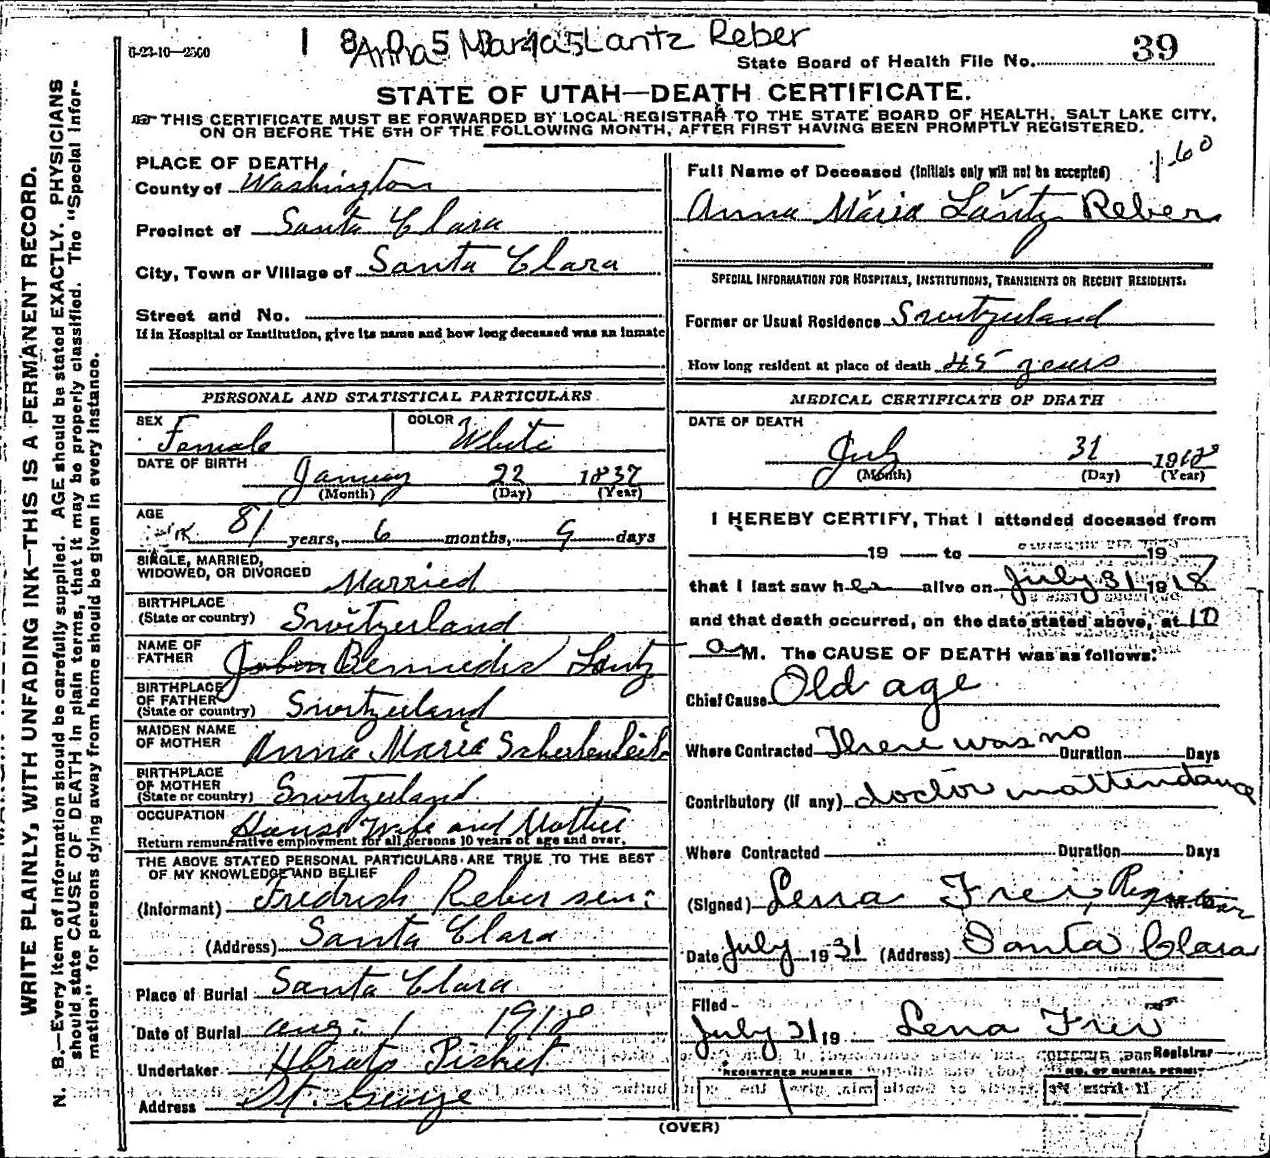 6-23-10—2500
1 8 Anna Maria Lantz Reber
State Board of Health File No. 39
STATE OF UTAH—DEATH CERTIFICATE.
THIS CERTIFICATE MUST BE FORWARDED BY LOCAL REGISTRAR TO THE STATE BOARD OF HEALTH, SALT LAKE CITY,
ON OR BEFORE THE 5TH OF THE FOLLOWING MONTH, AFTER FIRST HAVING BEEN PROMPTLY REGISTERED.
WRITE PLAINLY, WITH UNFADING INK—THIS IS A PERMANENT RECORD.
N. B.—Every item of information should be carefully supplied. AGE should be stated EXACTLY. PHYSICIANS
should state CAUSE OF DEATH in plain terms, that it may be properly classified. The "Special Infor-
mation" for persons dying away from home should be given in every instance.
PLACE OF DEATH,
County of Washington
Precinct of Santa Clara
City, Town or Village of Santa Clara
Street and No.
If in Hospital or Institution, give its name and how long deceased was an inmate
PERSONAL AND STATISTICAL PARTICULARS
SEX Female COLOR White
DATE OF BIRTH January 22 1837
(Month) (Day) (Year)
AGE 81 years, 6 months, 9 days
SINGLE, MARRIED,
WIDOWED, OR DIVORCED Married
BIRTHPLACE
(State or country) Switzerland
NAME OF
FATHER Lantz
BIRTHPLACE
OF FATHER
(State or country) Switzerland
MAIDEN NAME
OF MOTHER Anna Maria
BIRTHPLACE
OF MOTHER
(State or country) Switzerland
OCCUPATION House Wife and Mother
Return remunerative employment for all persons 10 years of age and over.
THE ABOVE STATED PERSONAL PARTICULARS ARE TRUE TO THE BEST
OF MY KNOWLEDGE AND BELIEF
(Informant) Fredrich Reber sen:
(Address) Santa Clara
Place of Burial Santa Clara
Date of Burial Aug. 1 1918
Undertaker Pickett
Address St. George
1.60
Full Name of Deceased (Initials only will not be accepted)
Anna Maria Lantz Reber
SPECIAL INFORMATION FOR HOSPITALS, INSTITUTIONS, TRANSIENTS OR RECENT RESIDENTS:
Former or Usual Residence Switzerland
How long resident at place of death 45 years
MEDICAL CERTIFICATE OF DEATH
DATE OF DEATH
July 31 1918
(Month) (Day) (Year)
I HEREBY CERTIFY, That I attended deceased from
19 to 19
that I last saw her alive on July 31 1918
and that death occurred, on the date stated above, at 10
a M. The CAUSE OF DEATH was as follows:
Chief Cause Old age
Where Contracted There was no Duration Days
Contributory (if any) doctor in attendance
Where Contracted Duration Days
(Signed) Lena Frei, Registrar M. D.
Date July 1931 (Address) Santa Clara
Filed
July 31 19 Lena Frei
Registrar
REGISTERED NUMBER NO. OF BURIAL PERMIT
1
(OVER)